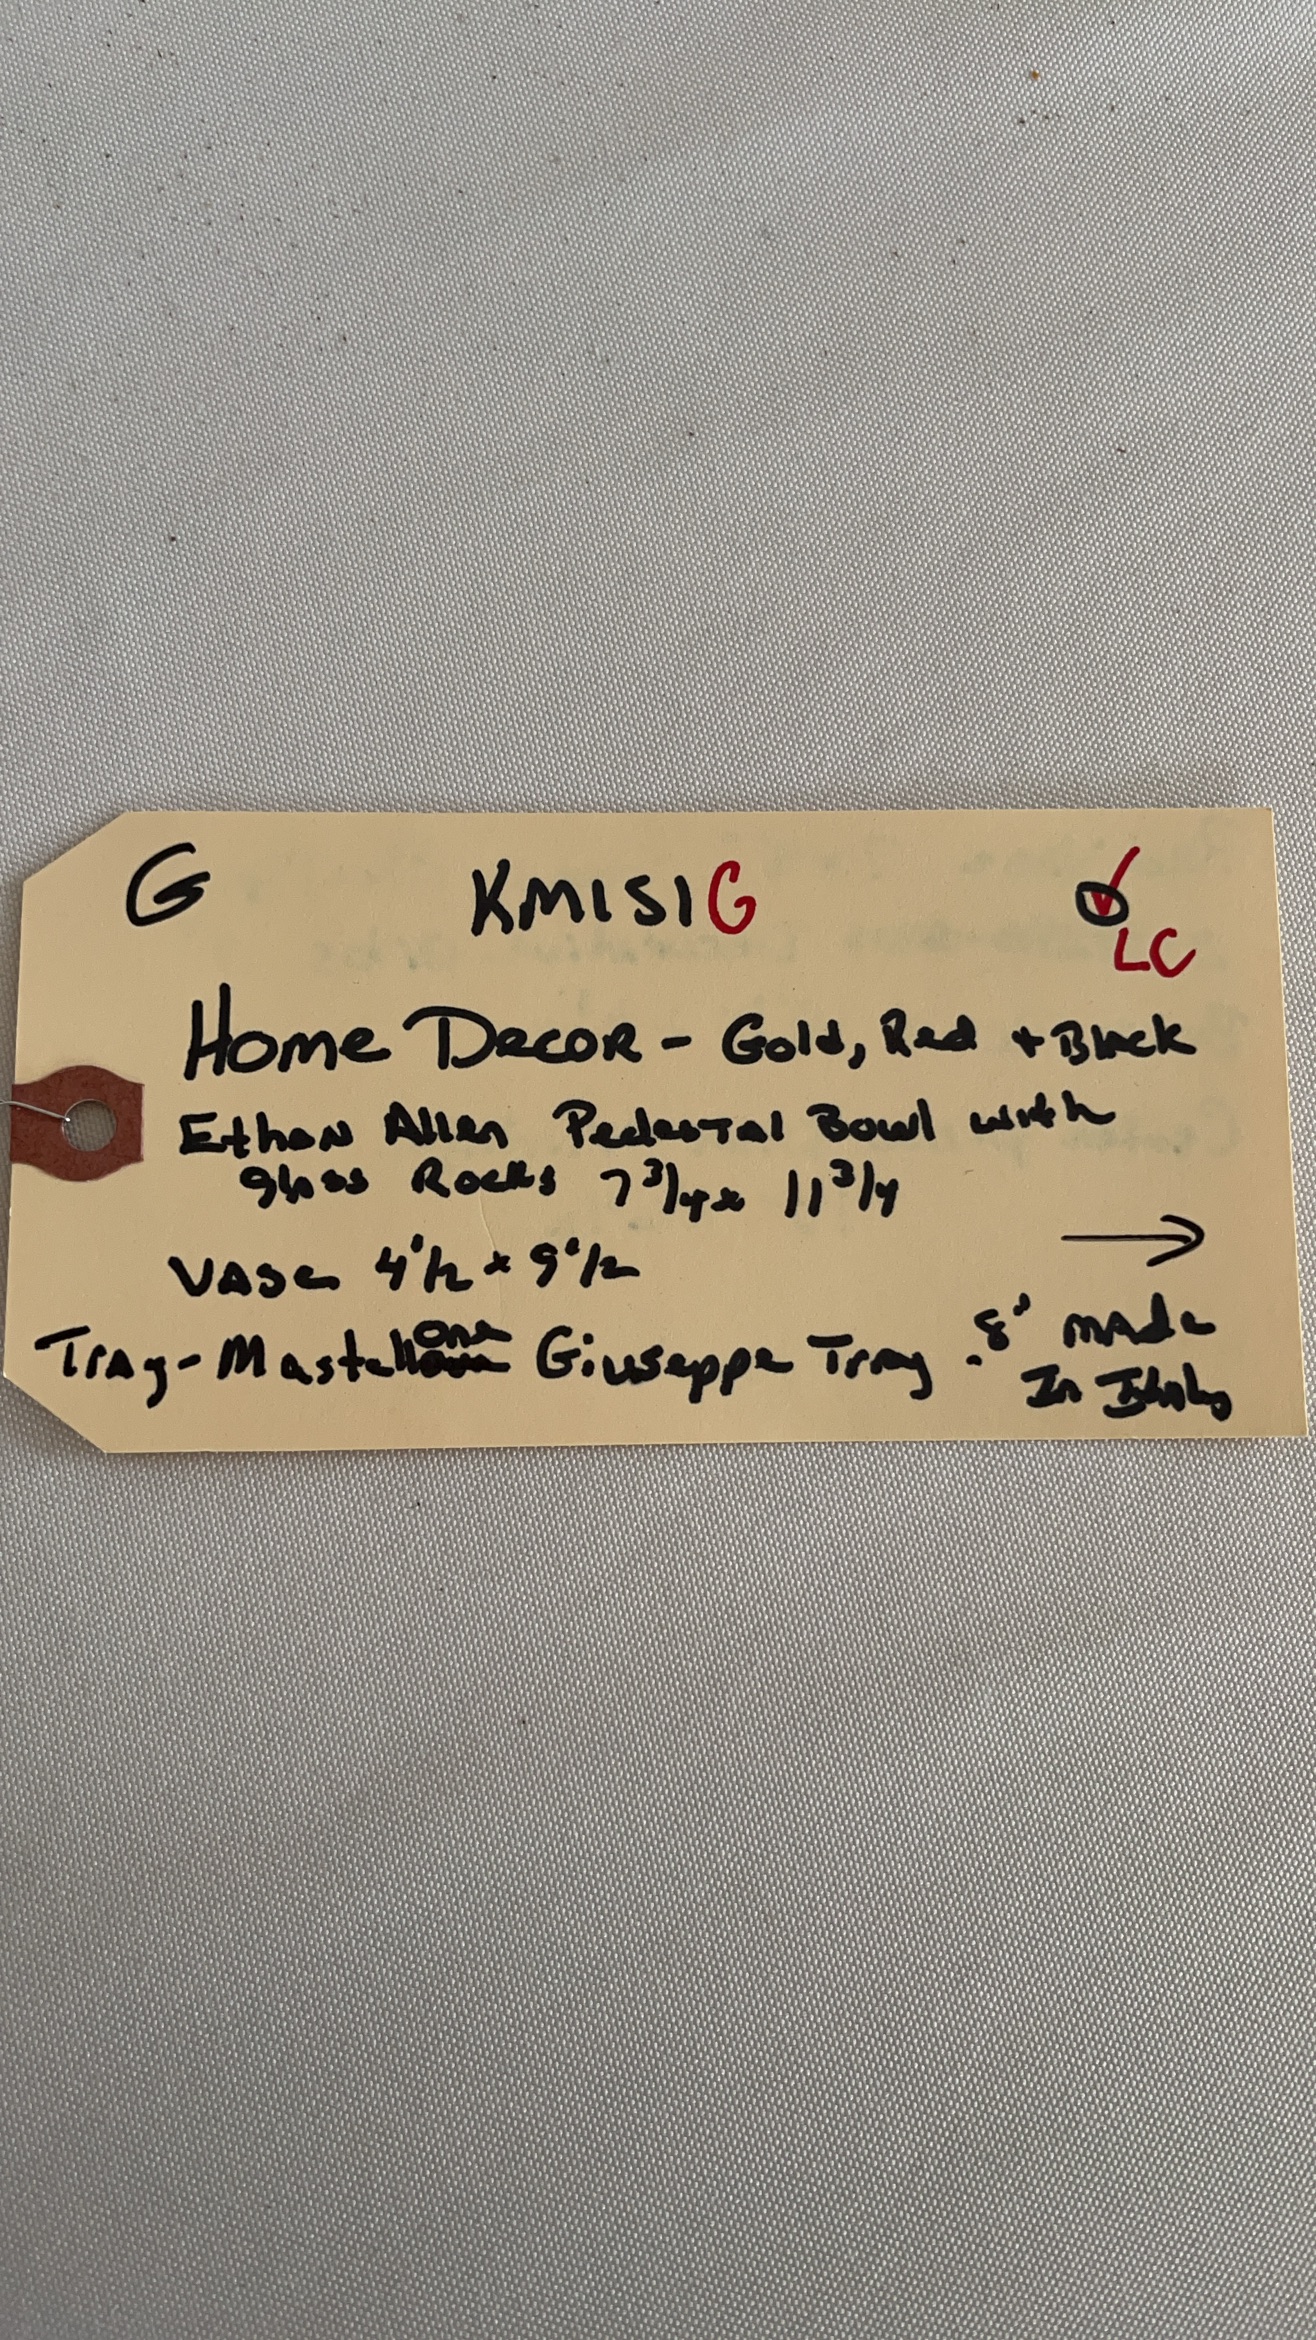 G KM151G
LC
Home Decor - Gold, Red + Black
Ethan Allen Pedestal Bowl with
glass Rocks 7 3/4 x 11 3/4
→
Vase 4 1/2 x 9 1/2
Tray - Mastellone Giuseppe Tray . 8" made
In Italy